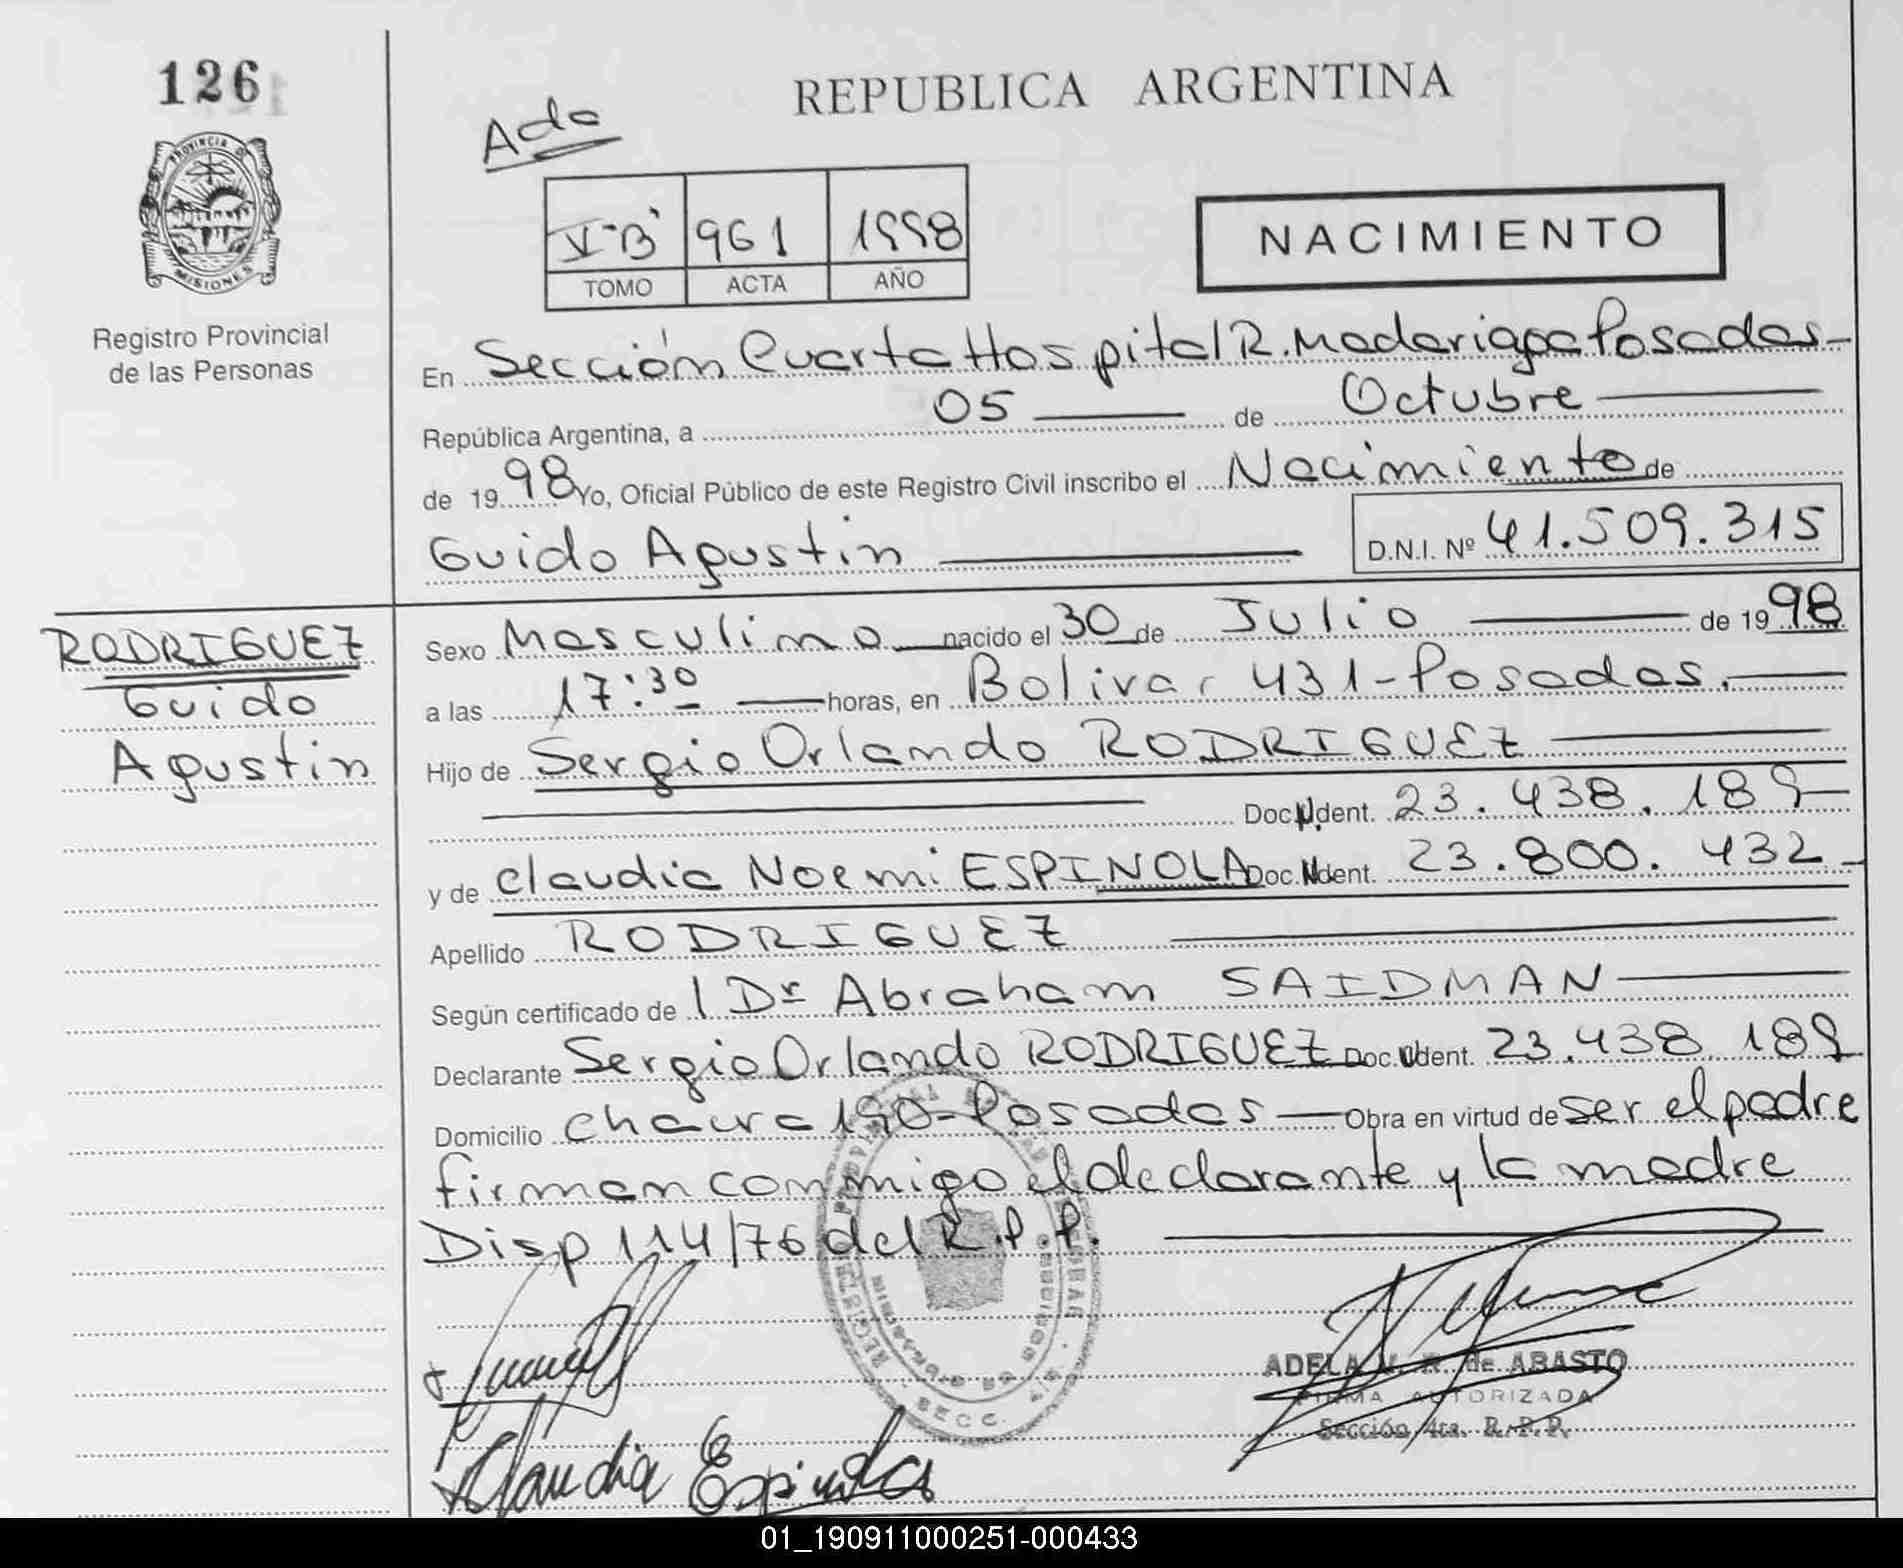 126
REPUBLICA ARGENTINA
PROVINCIA D
MISIONES
Registro Provincial
de las Personas
V-B' 961 1998
TOMO ACTA AÑO
NACIMIENTO
En Sección Cuarta Hospital R. Madariaga Posadas
República Argentina, a 05 de Octubre
de 1998 Yo, Oficial Público de este Registro Civil inscribo el Nacimiento de
Guido Agustin D.N.I. Nº 41.509.315
RODRIGUEZ
Guido
Agustin
Sexo Masculino nacido el 30 de Julio de 1998
a las 17:30 horas, en Bolivar 431-Posadas.
Hijo de Sergio Orlando RODRIGUEZ
Doc. Ident. 23.438.189
y de Claudia Noemi ESPINOLA Doc. Ident. 23.800.432
Apellido RODRIGUEZ
Según certificado de l Dr Abraham SAIDMAN
Declarante Sergio Orlando RODRIGUEZ Doc. Ident. 23.438.189
Domicilio 190-Posadas Obra en virtud de ser el padre
firman conmigo el declarante y la madre
Disp 114/76 del R.P.P.
ADELA de ABASTO
FIRMA AUTORIZADA
Sección 4ta. R.P.P.
Claudia Espinola
01_190911000251-000433